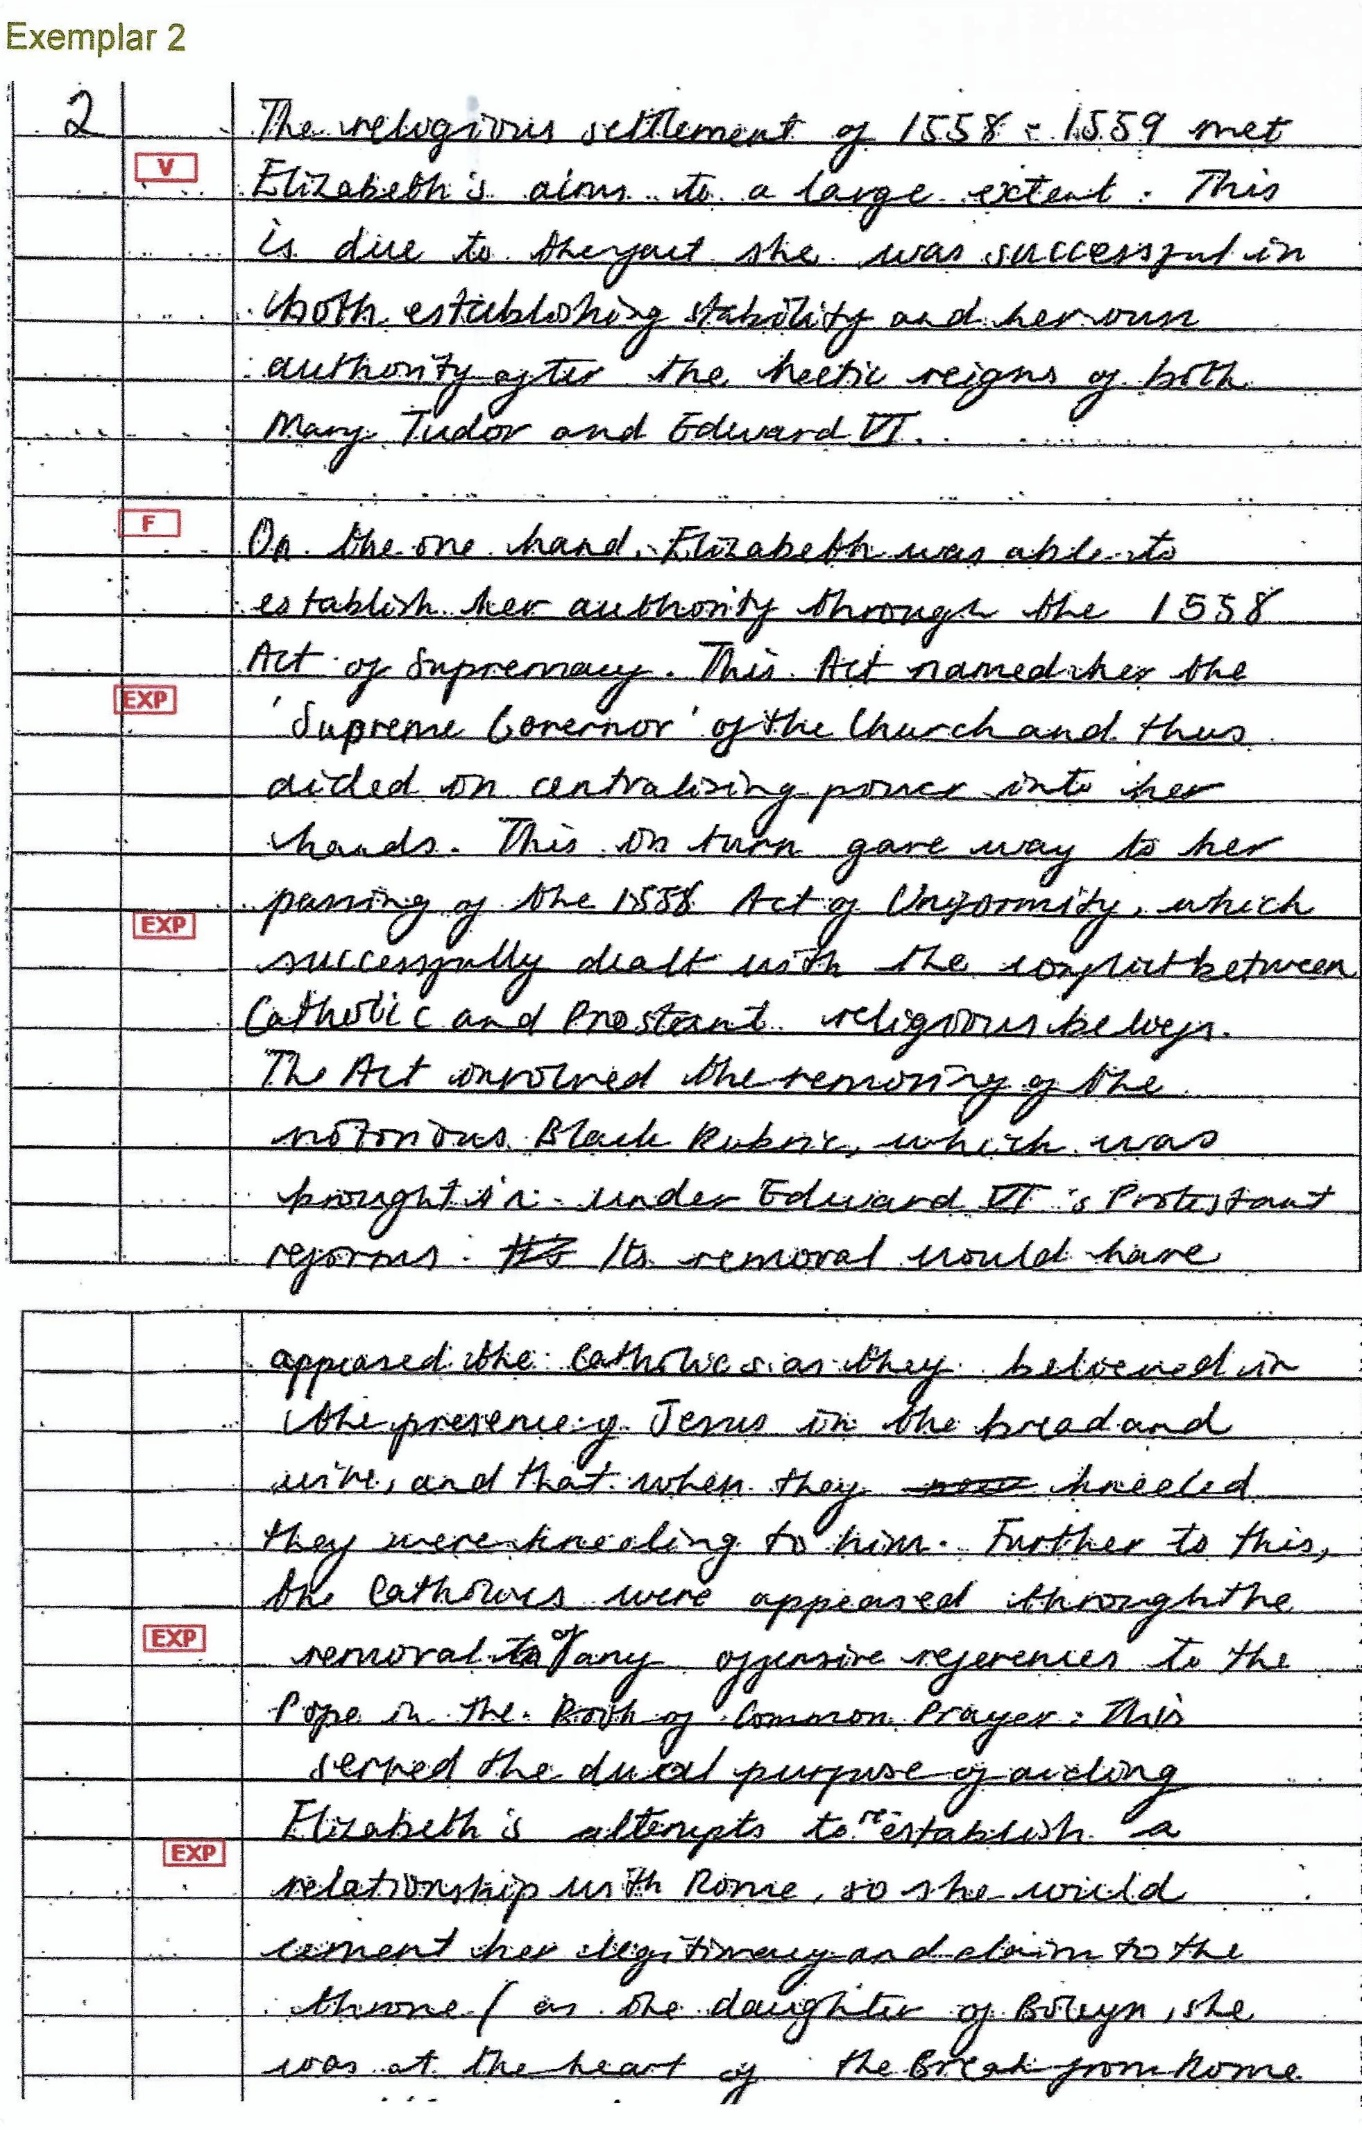 Exemplar 2
2 The religious settlement of 1558-1559 met
V
Elizabeth's aims to a large extent. This
is due to the fact she was successful in
both establishing stability and her own
authority after the hectic reigns of both
Mary Tudor and Edward VI.
F
On the one hand, Elizabeth was able to
establish her authority through the 1558
Act of Supremacy. This Act named her the
EXP
'Supreme Governor' of the Church and thus
aided in centralising power into her
hands. This in turn gave way to her
passing of the 1558 Act of Uniformity, which
EXP
successfully dealt with the conflict between
Catholic and Prosteant religious beliefs.
The Act involved the removing of the
notorious Black Rubric, which was
brought in under Edward VI's Protestant
reforms. Its removal would have
appeased the Catholics as they believed in
the presence of Jesus in the bread and
wine, and that when they kneeled
they were kneeling to him. Further to this,
the Catholics were appeased through the
EXP
removal of any offensive references to the
Pope in the Book of Common Prayer. This
served the dual purpose of aiding
Elizabeth's attempts to reestablish a
EXP
relationship with Rome, so she could
cement her legitimacy and claim to the
throne (as the daughter of Boleyn, she
was at the heart of the Break from Rome